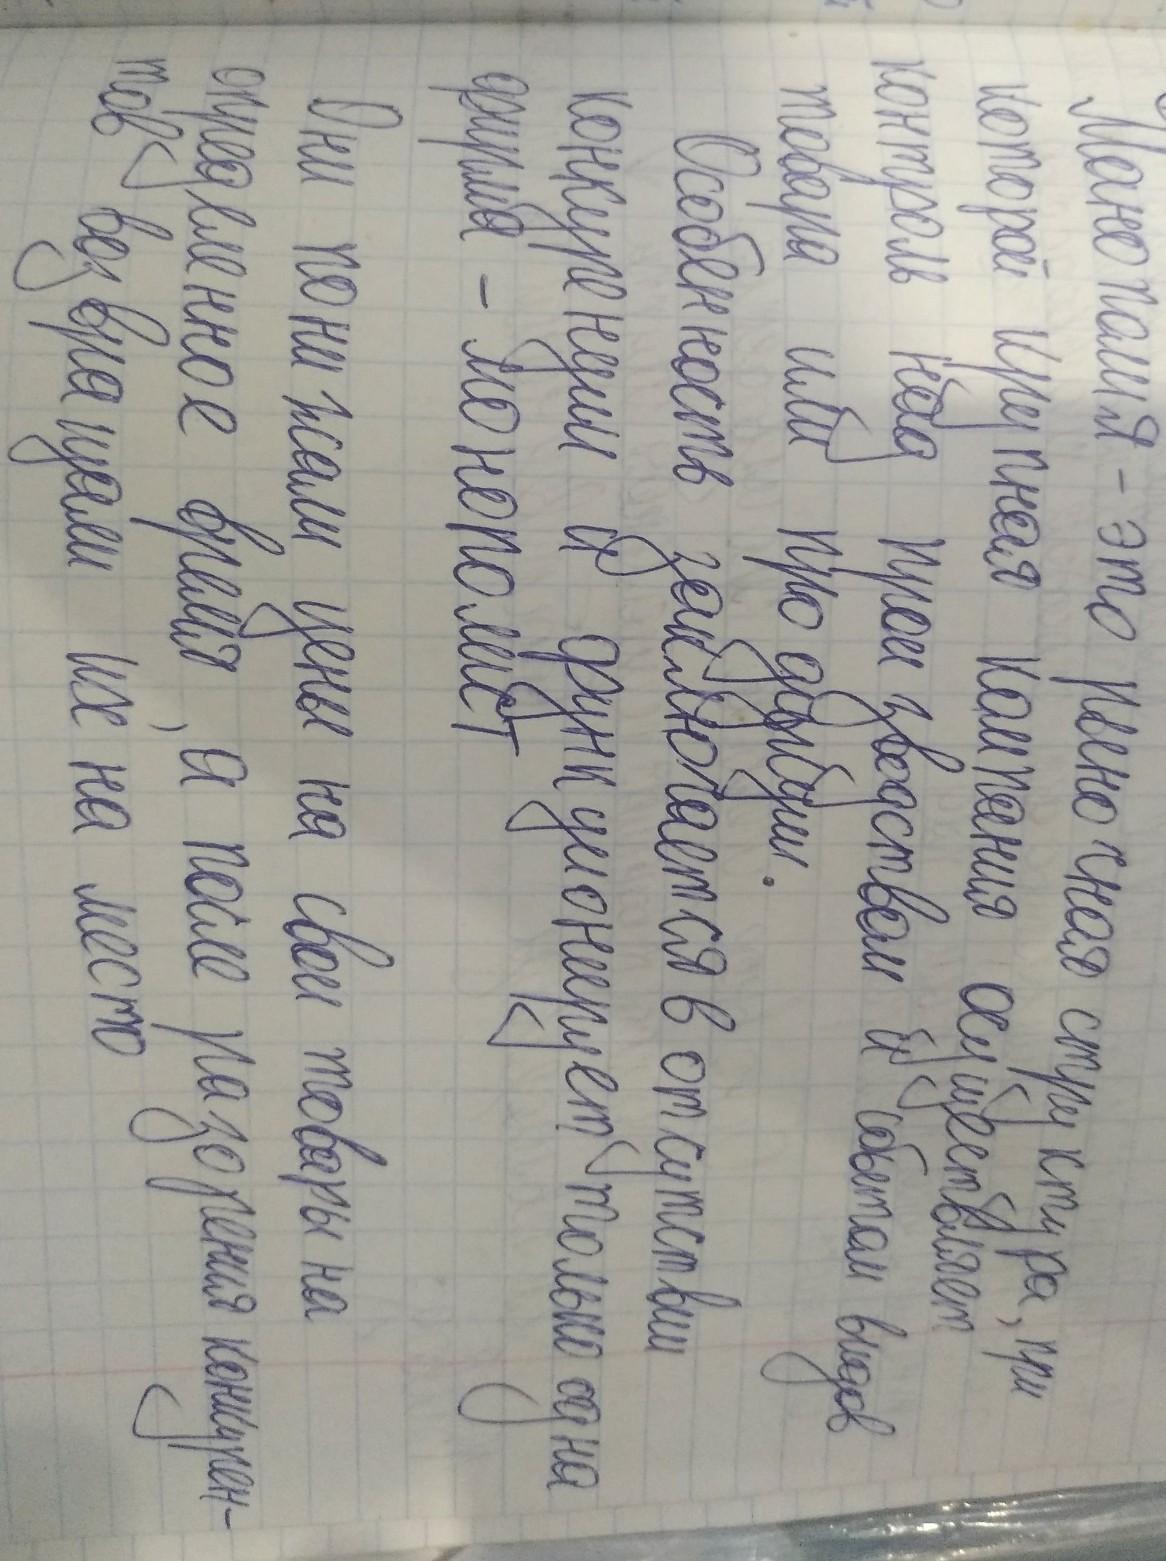 Монополия - это рыночная структура, при
которой крупная компания осуществляет
контроль над производством и сбытом видов
товара или продукции.
Особенность заключается в отсутствии
конкуренции и функционирует только одна
фирма - монополист
Они понижали цены на свои товары на
определенное время, а после разорения конкурен-
тов возвращали их на место